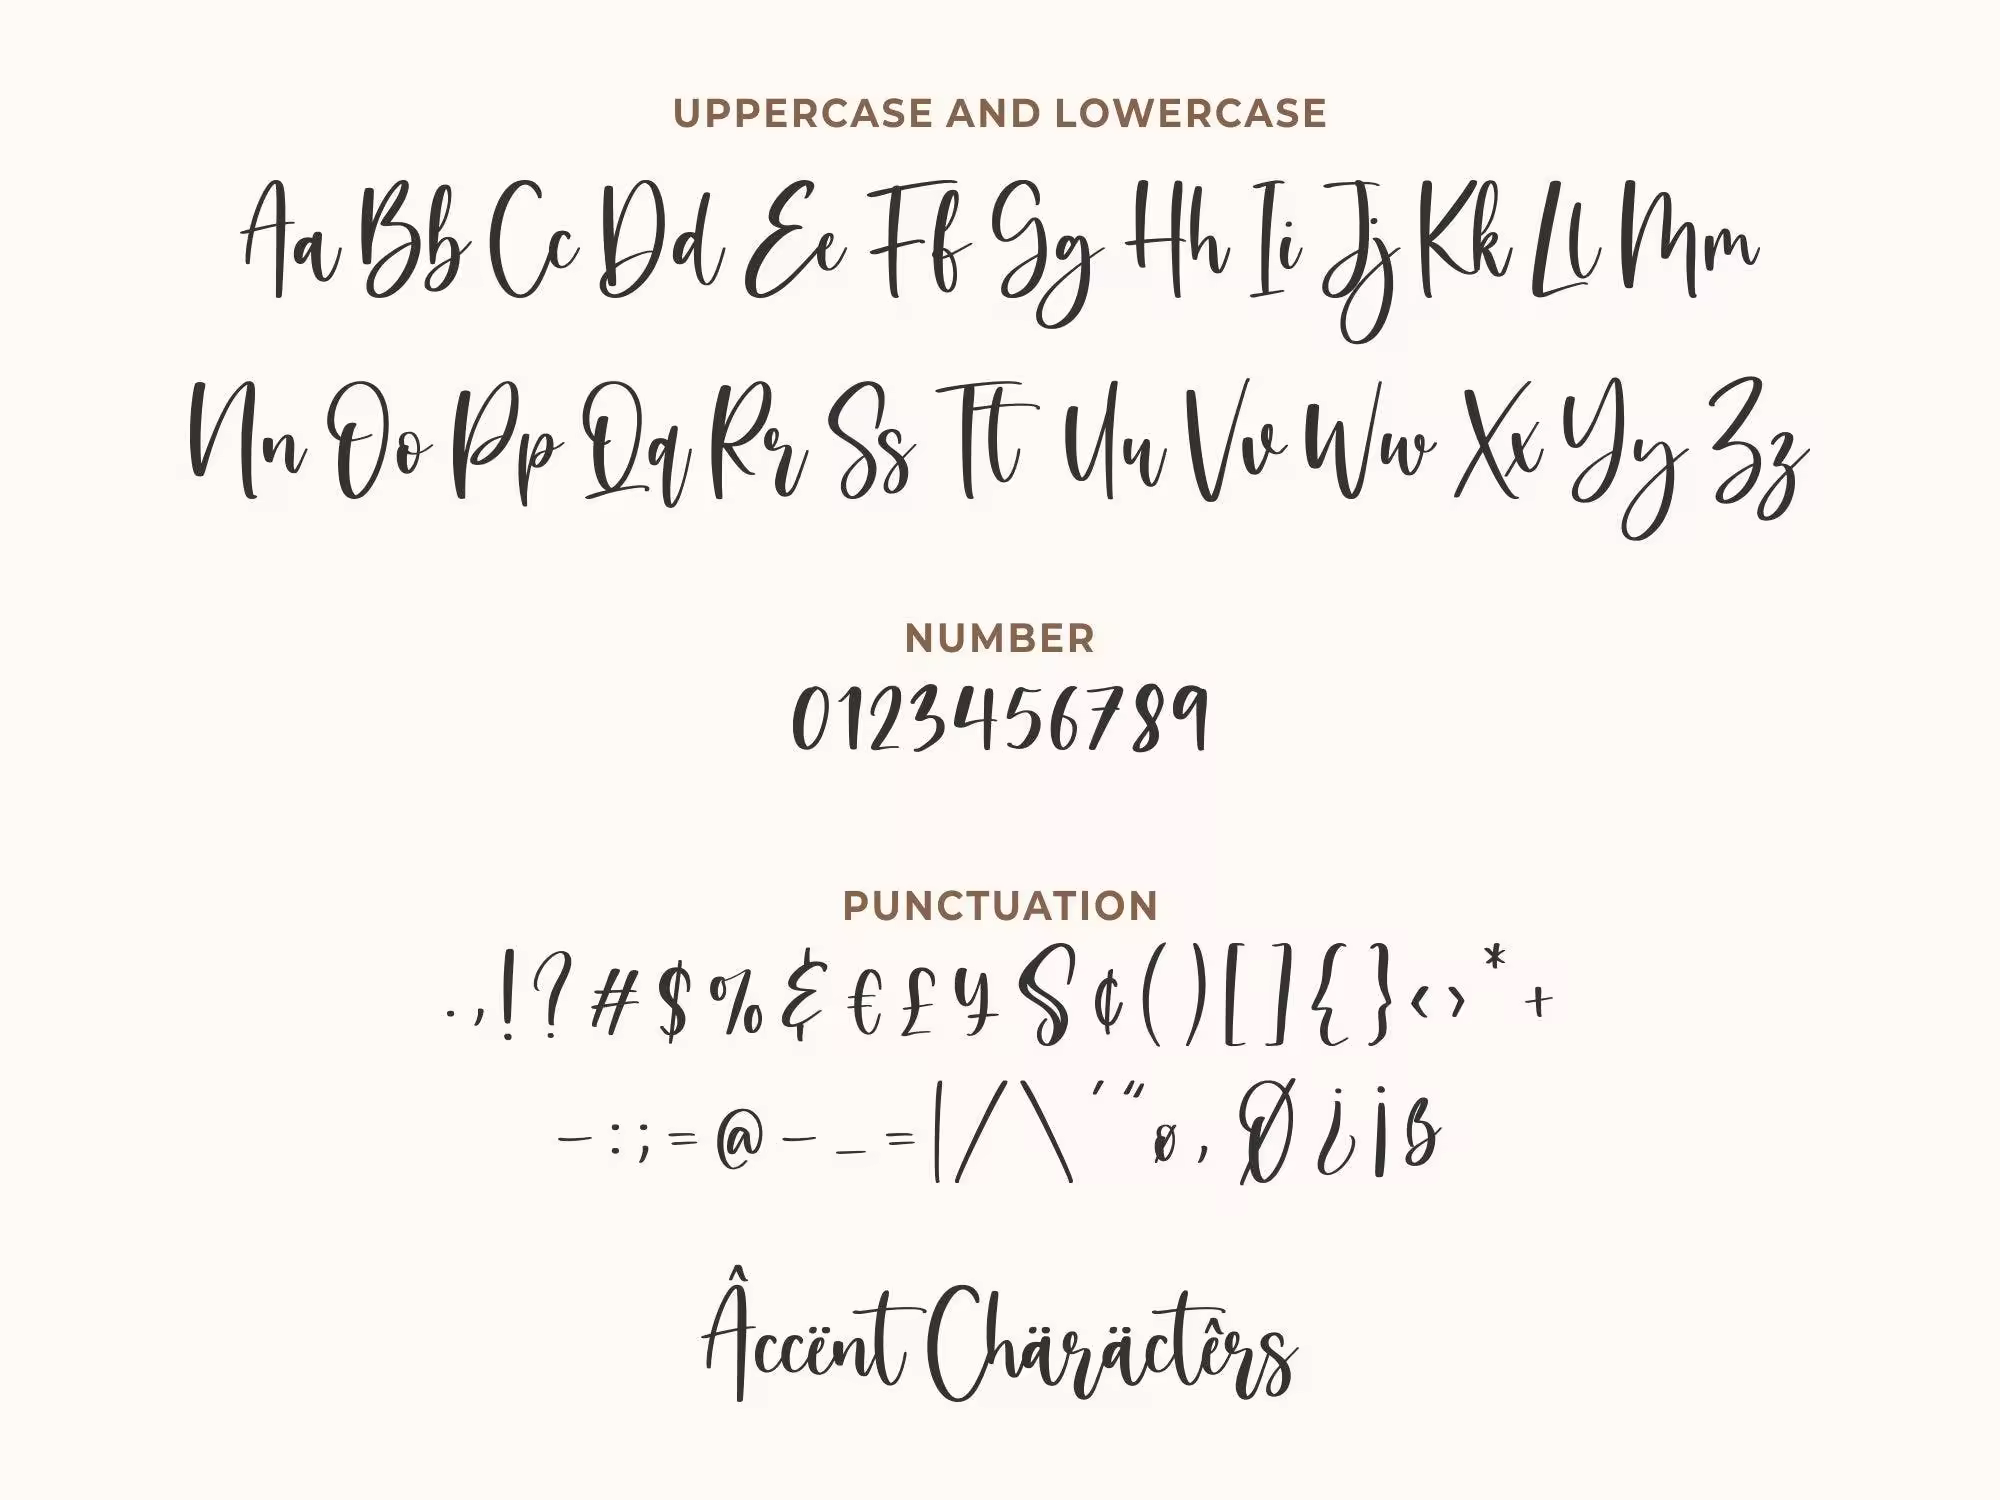 UPPERCASE AND LOWERCASE
Aa Bb Cc Dd Ee Ff Gg Hh Ii Jj Kk Ll Mm
Nn Oo Pp Qq Rr Ss Tt Uu Vv Ww Xx Yy Zz
NUMBER
0123456789
PUNCTUATION
. , ! ? # $ % & € £ ¥ S ¢ ( ) [ ] { } ‹ › * +
– : ; = @ – _ = | / \ ' " ø , Ø ¿ ¡ ß
Âccënt Chäräctêrs